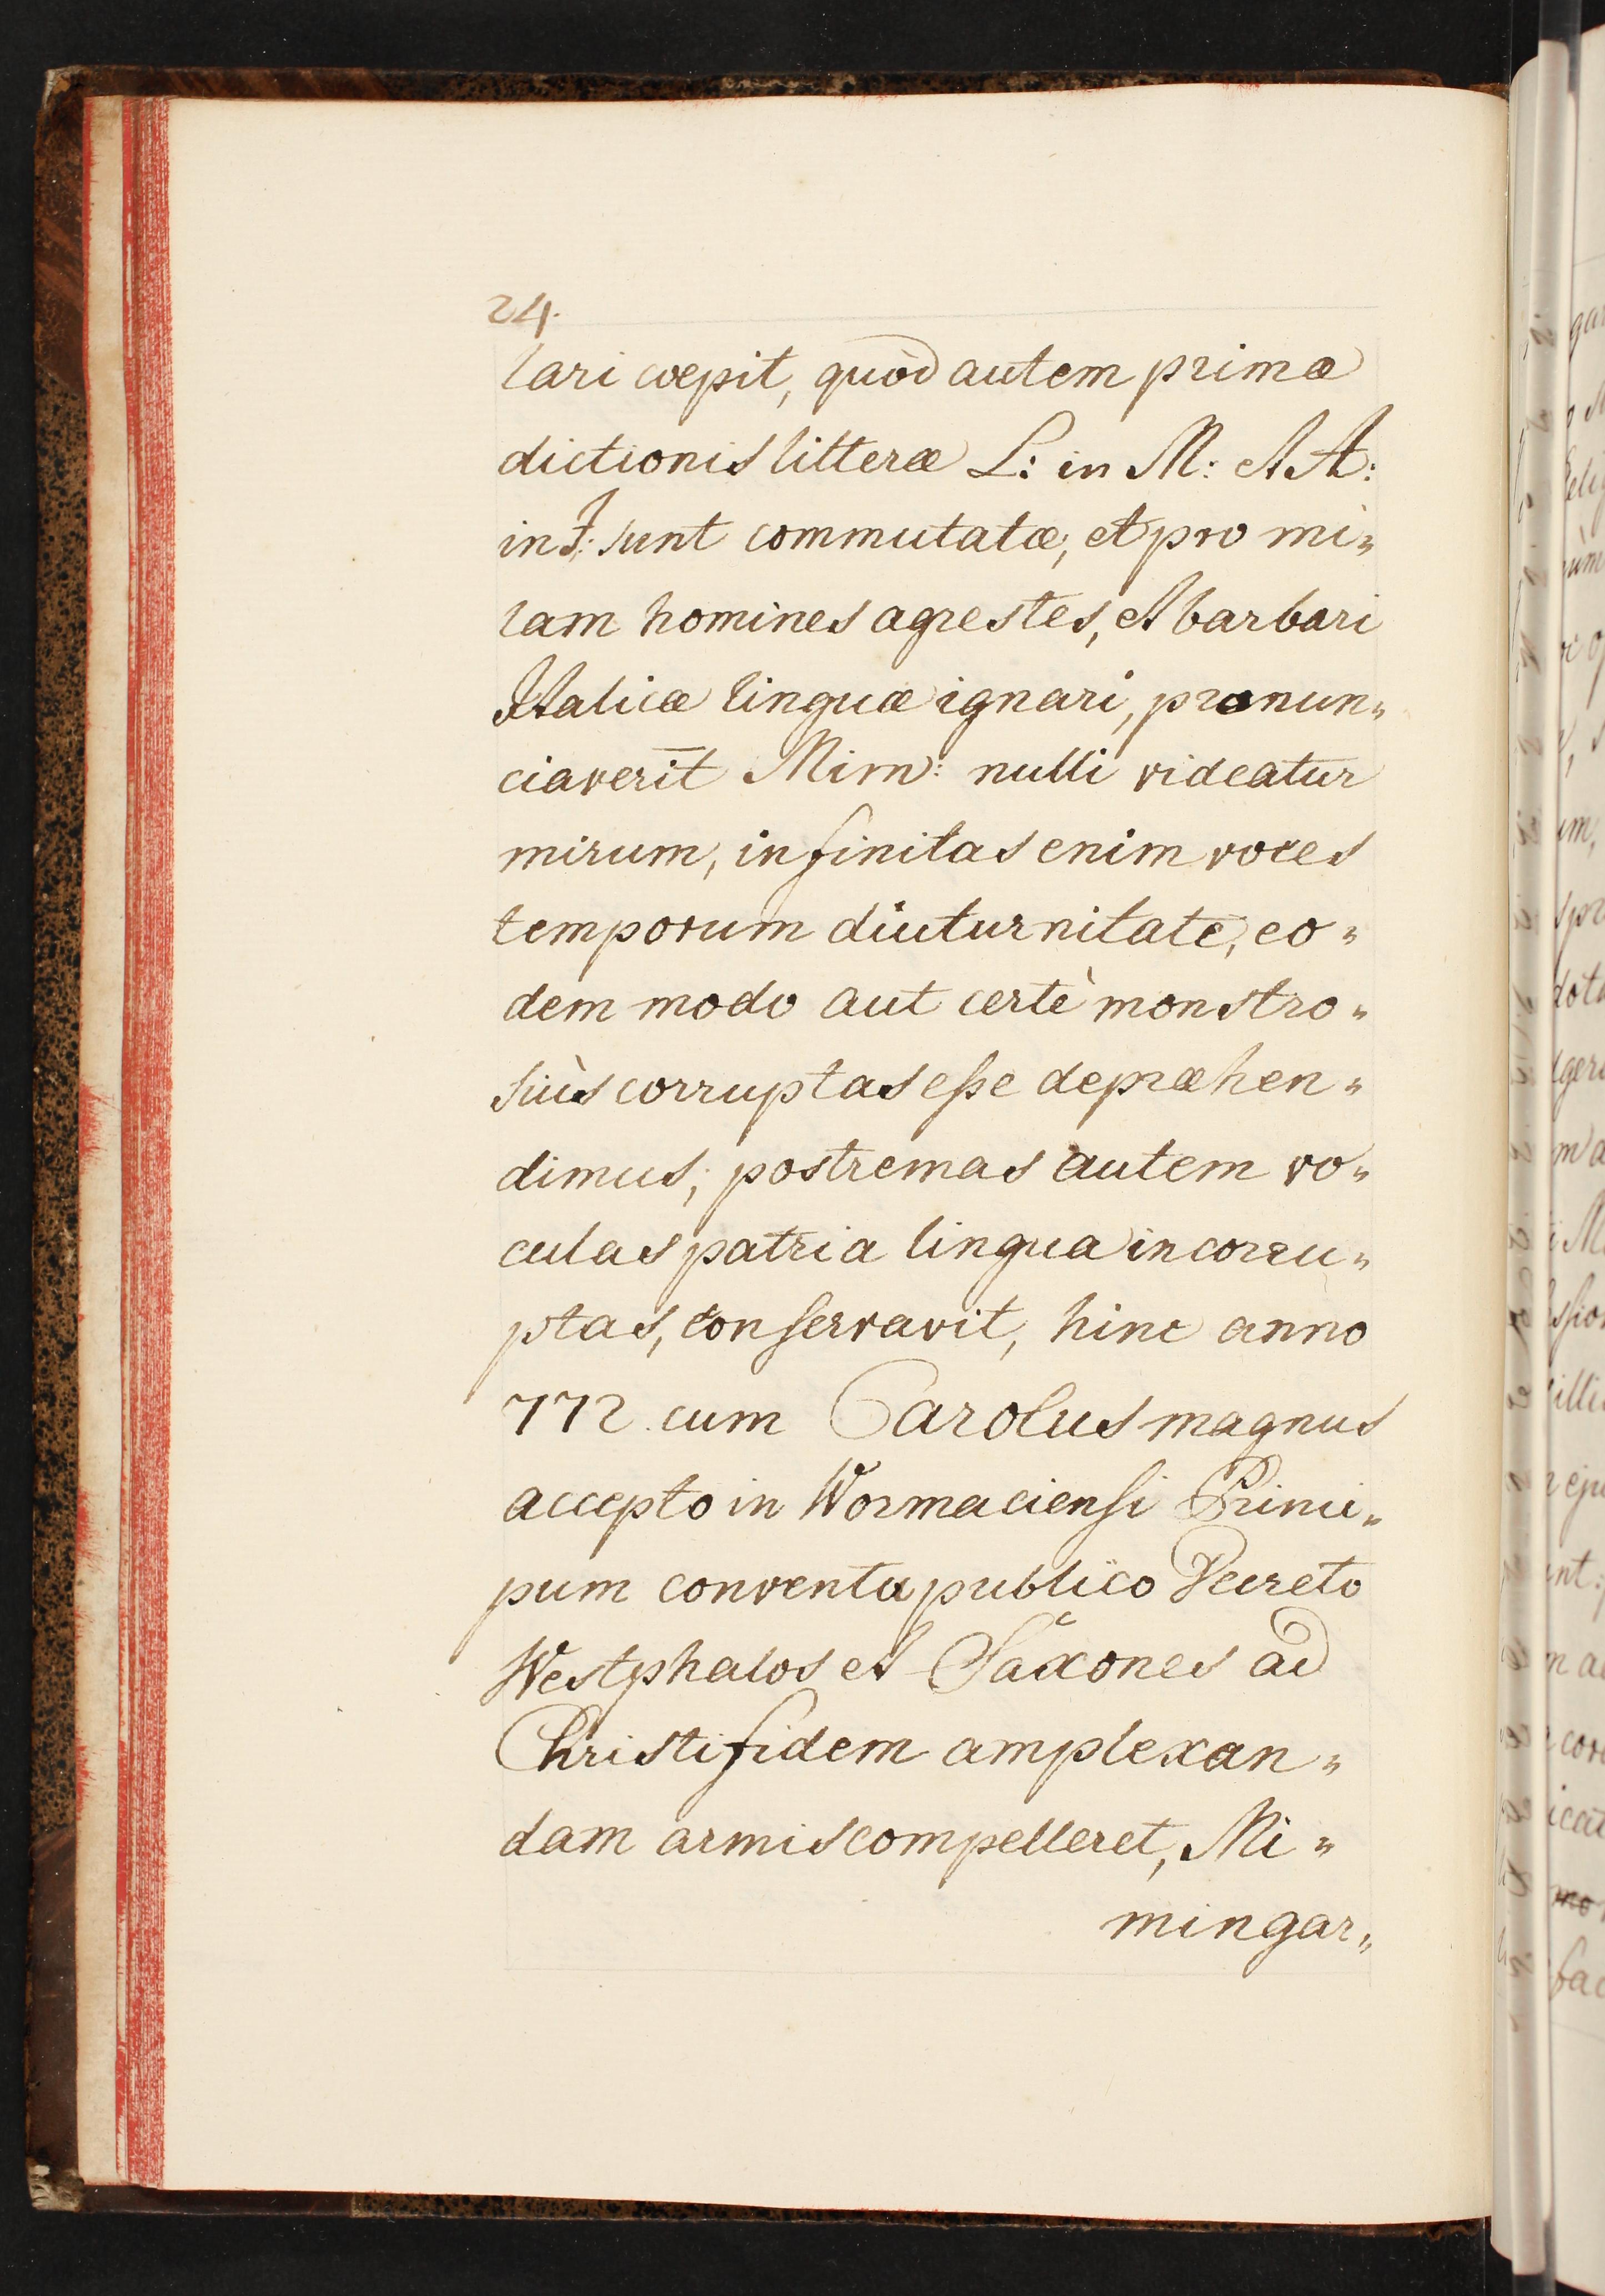 24.
lari coepit, quòd autem primæ
dictionis litteræ L: in M: et A:
in I: sunt commutatæ; et pro mi„
lam homines agrestes, et barbari
Italicæ linguæ ignari, pronun„
ciaverīt Mim: nulli videatur
mirum, infinitas enim voces
temporum diuturnitate, eo„
dem modo aut certè monstro„
siùs corruptas eſse depræhen„
dimus; postremas autem vo„
culas patria lingua incorru„
ptas, conservavit, hinc anno
772 cum Carolus magnus
accepto in Wormaciensi Princi„
pum conventu publico Decreto
Westphalos et Saxones ad
Christi fidem amplexan„
dam armis compelleret, Mi„
mingar„